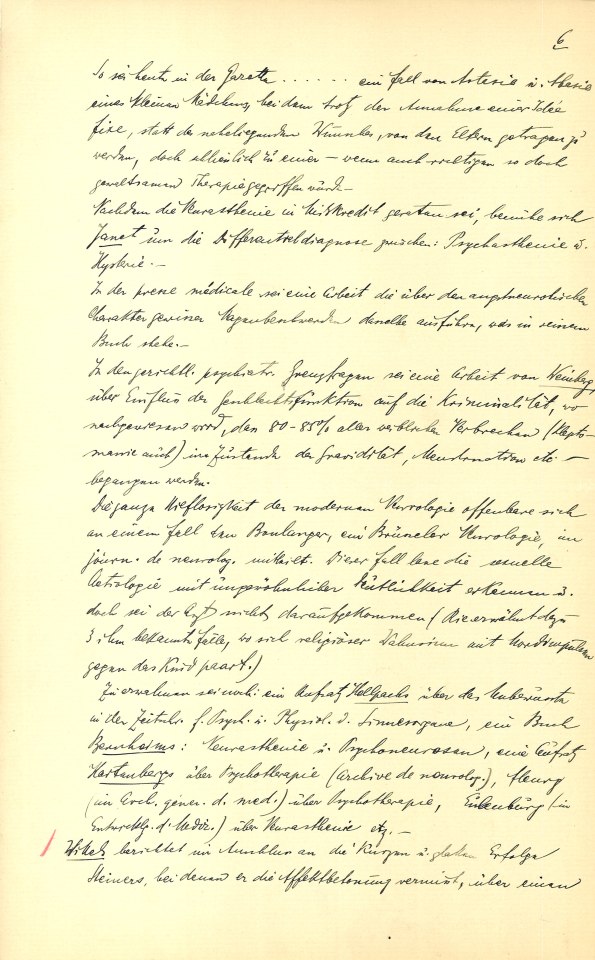 6
So sei heute in der Gazette . . . . . . ein Fall von Astasie u. Abasie
eines kleinen Mädchens, bei dem trotz der Annahme einer Idée
fixe, statt des naheliegenden Wunsches, von den Eltern getragen zu
werden, doch schließlich zu einer – wenn auch so doch
gewaltsamen Therapie gegriffen wurde.–
Nachdem die Neurasthenie in Misskredit geraten sei, bemühe sich
Janet um die Differentialdiagnose zwischen: Psychasthenie u.
Hysterie.–
In der presse médicale sei eine Arbeit die über den angstneurotischen
Charakter gewisser Magenbeschwerden dasselbe ausführe, was in seinem
Buch stehe.–
In den gerichtl. psychiatr. Grenzfragen sei eine Arbeit von Weinberg,
über Einfluss der Geschlechtsfunktion auf die Kriminalität, wo
nachgewiesen wird, dass 80-85% aller weiblichen Verbrechen (Klepto-
manie auch) im Zustande der Gravidität, Menstruation etc –
begangen werden.
Die ganze Hilflosigkeit der modernen Neurologie offenbare sich
an einem Fall den Boulanger, ein Brüsseler Neurologe im
journ. de neurolog. mitteilt. Dieser Fall lasse die sexuelle
Aetiologie mit ungewöhnlicher Deutlichkeit erkennen u.
doch sei der Arzt nicht daraufgekommen (Rie erwähnt dazu
3 ihm bekannte Fälle, wo sich religiöser Wahnsinn mit Mordimpulsen
gegen das Kind paart.)
Zu erwähnen sei noch: ein Aufsatz Hellpachs über das Unbewusste
in der Zeitschr. f. Psych. u. Physiol. d. Sinnesorgane, ein Buch
Bernheims: Neurasthenie u. Psychoneurosen, ein Aufsatz
Hartenbergs über Psychotherapie (Archive de neurolog.), Fleury
(im Arch. génér. d. med.) über Psychotherapie, Eulenburg (in
Entwicklg. d. Mediz.) über Neurasthenie etz.–
Wittels berichtet im Anschluss an die kurzen u. Erfolge
Steiners, bei denen er die Affektbetonung vermisst, über einen